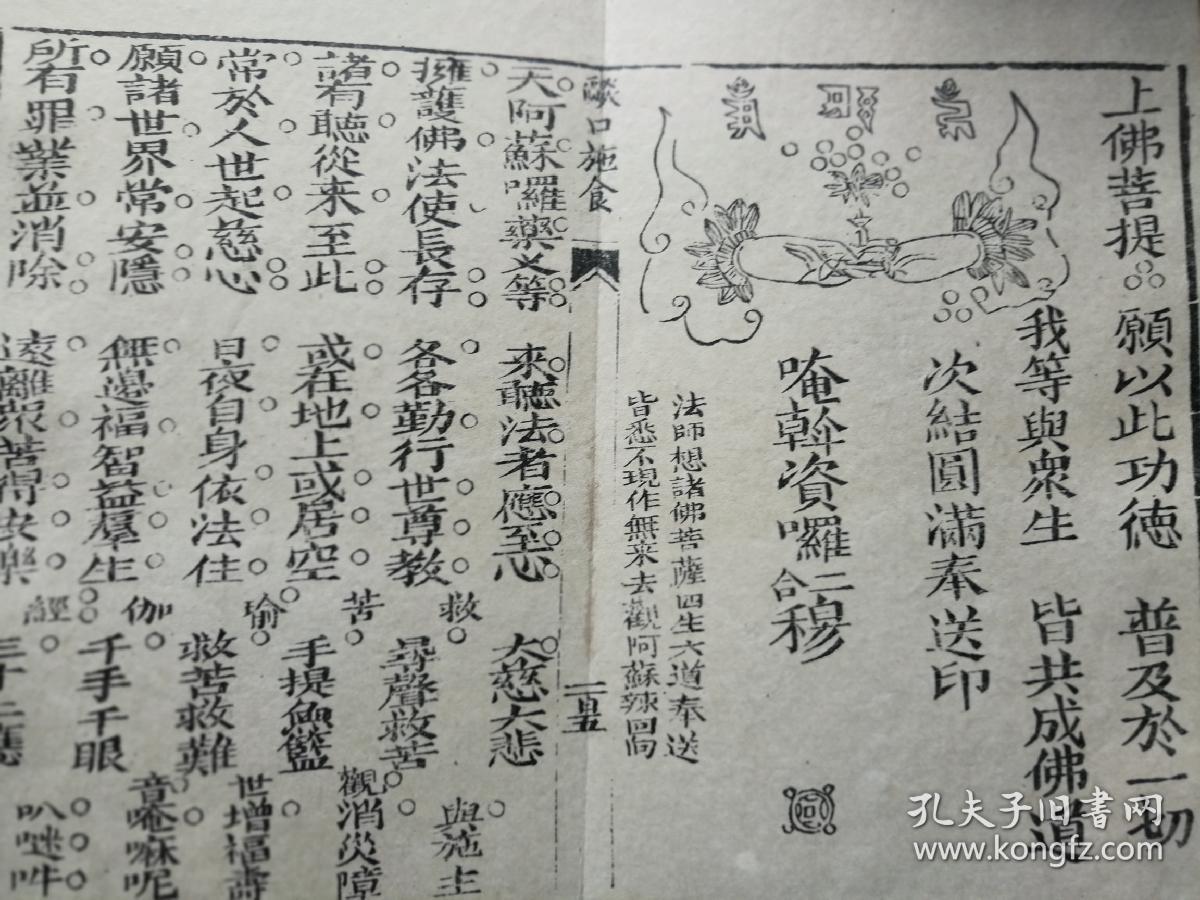 上佛菩提 願以此功德 普及於一切
我等與衆生 皆共成佛道
次結圓滿奉送印
唵斡資囉二合穆
法師想諸佛菩薩四生六道奉送
皆悉不現作無来去觀阿蘇辣回向
燄口施食
一百五
天阿蘇囉藥义等 来聽法者應至心 大慈大悲
擁護佛法使長存 各各勤行世尊教 救 尋聲救苦 與施主
諸有聽從来至此 或在地上或居空 苦 手提魚籃 觀消災障
常於人世起慈心 晝夜自身依法住 瑜 救苦救難 世增福壽
願諸世界常安隱 無邊福智益羣生 伽 千手千眼 音唵嘛呢
所有罪業並消除 遠離眾苦得安樂 經 三十二應 叭𠺗吽
孔夫子旧书网
www.kongfz.com